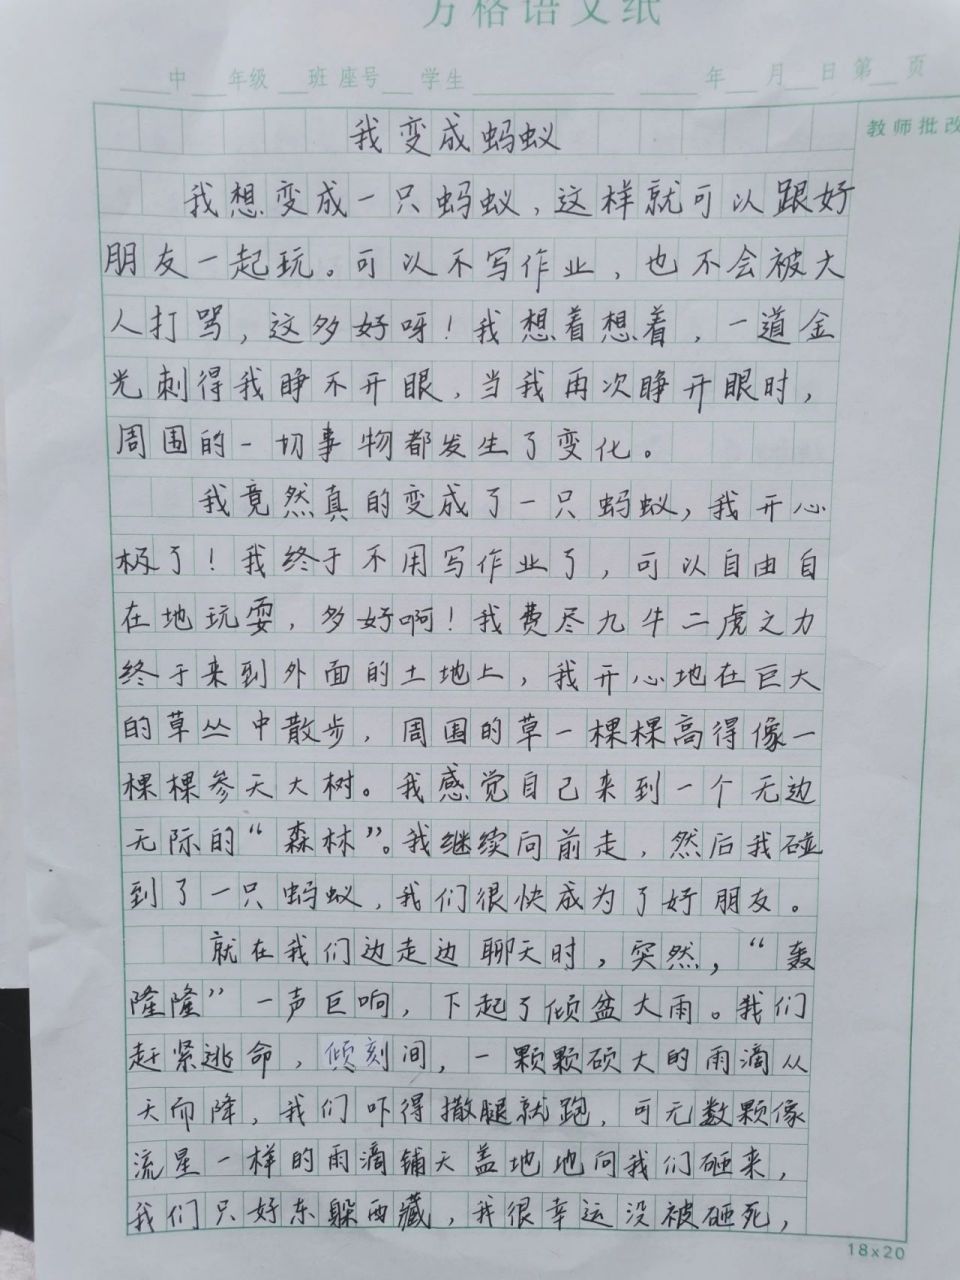 方格语文纸
中 年级 班 座号 学生 年 月 日 第 页
教师批改
我变成蚂蚁
我想变成一只蚂蚁,这样就可以跟好
朋友一起玩。可以不写作业,也不会被大
人打骂,这多好呀!我想着想着,一道金
光刺得我睁不开眼,当我再次睁开眼时,
周围的一切事物都发生了变化。
我竟然真的变成了一只蚂蚁,我开心
极了!我终于不用写作业了,可以自由自
在地玩耍,多好啊!我费尽九牛二虎之力
终于来到外面的土地上,我开心地在巨大
的草丛中散步,周围的草一棵棵高得像一
棵棵参天大树。我感觉自己来到一个无边
无际的“森林”。我继续向前走,然后我碰
到了一只蚂蚁,我们很快成为了好朋友。
就在我们边走边聊天时,突然,“轰
隆隆”一声巨响,下起了倾盆大雨。我们
赶紧逃命,倾刻间,一颗颗硕大的雨滴从
天而降,我们吓得撒腿就跑,可无数颗像
流星一样的雨滴铺天盖地地向我们砸来,
我们只好东躲西藏,我很幸运没被砸死,
18×20